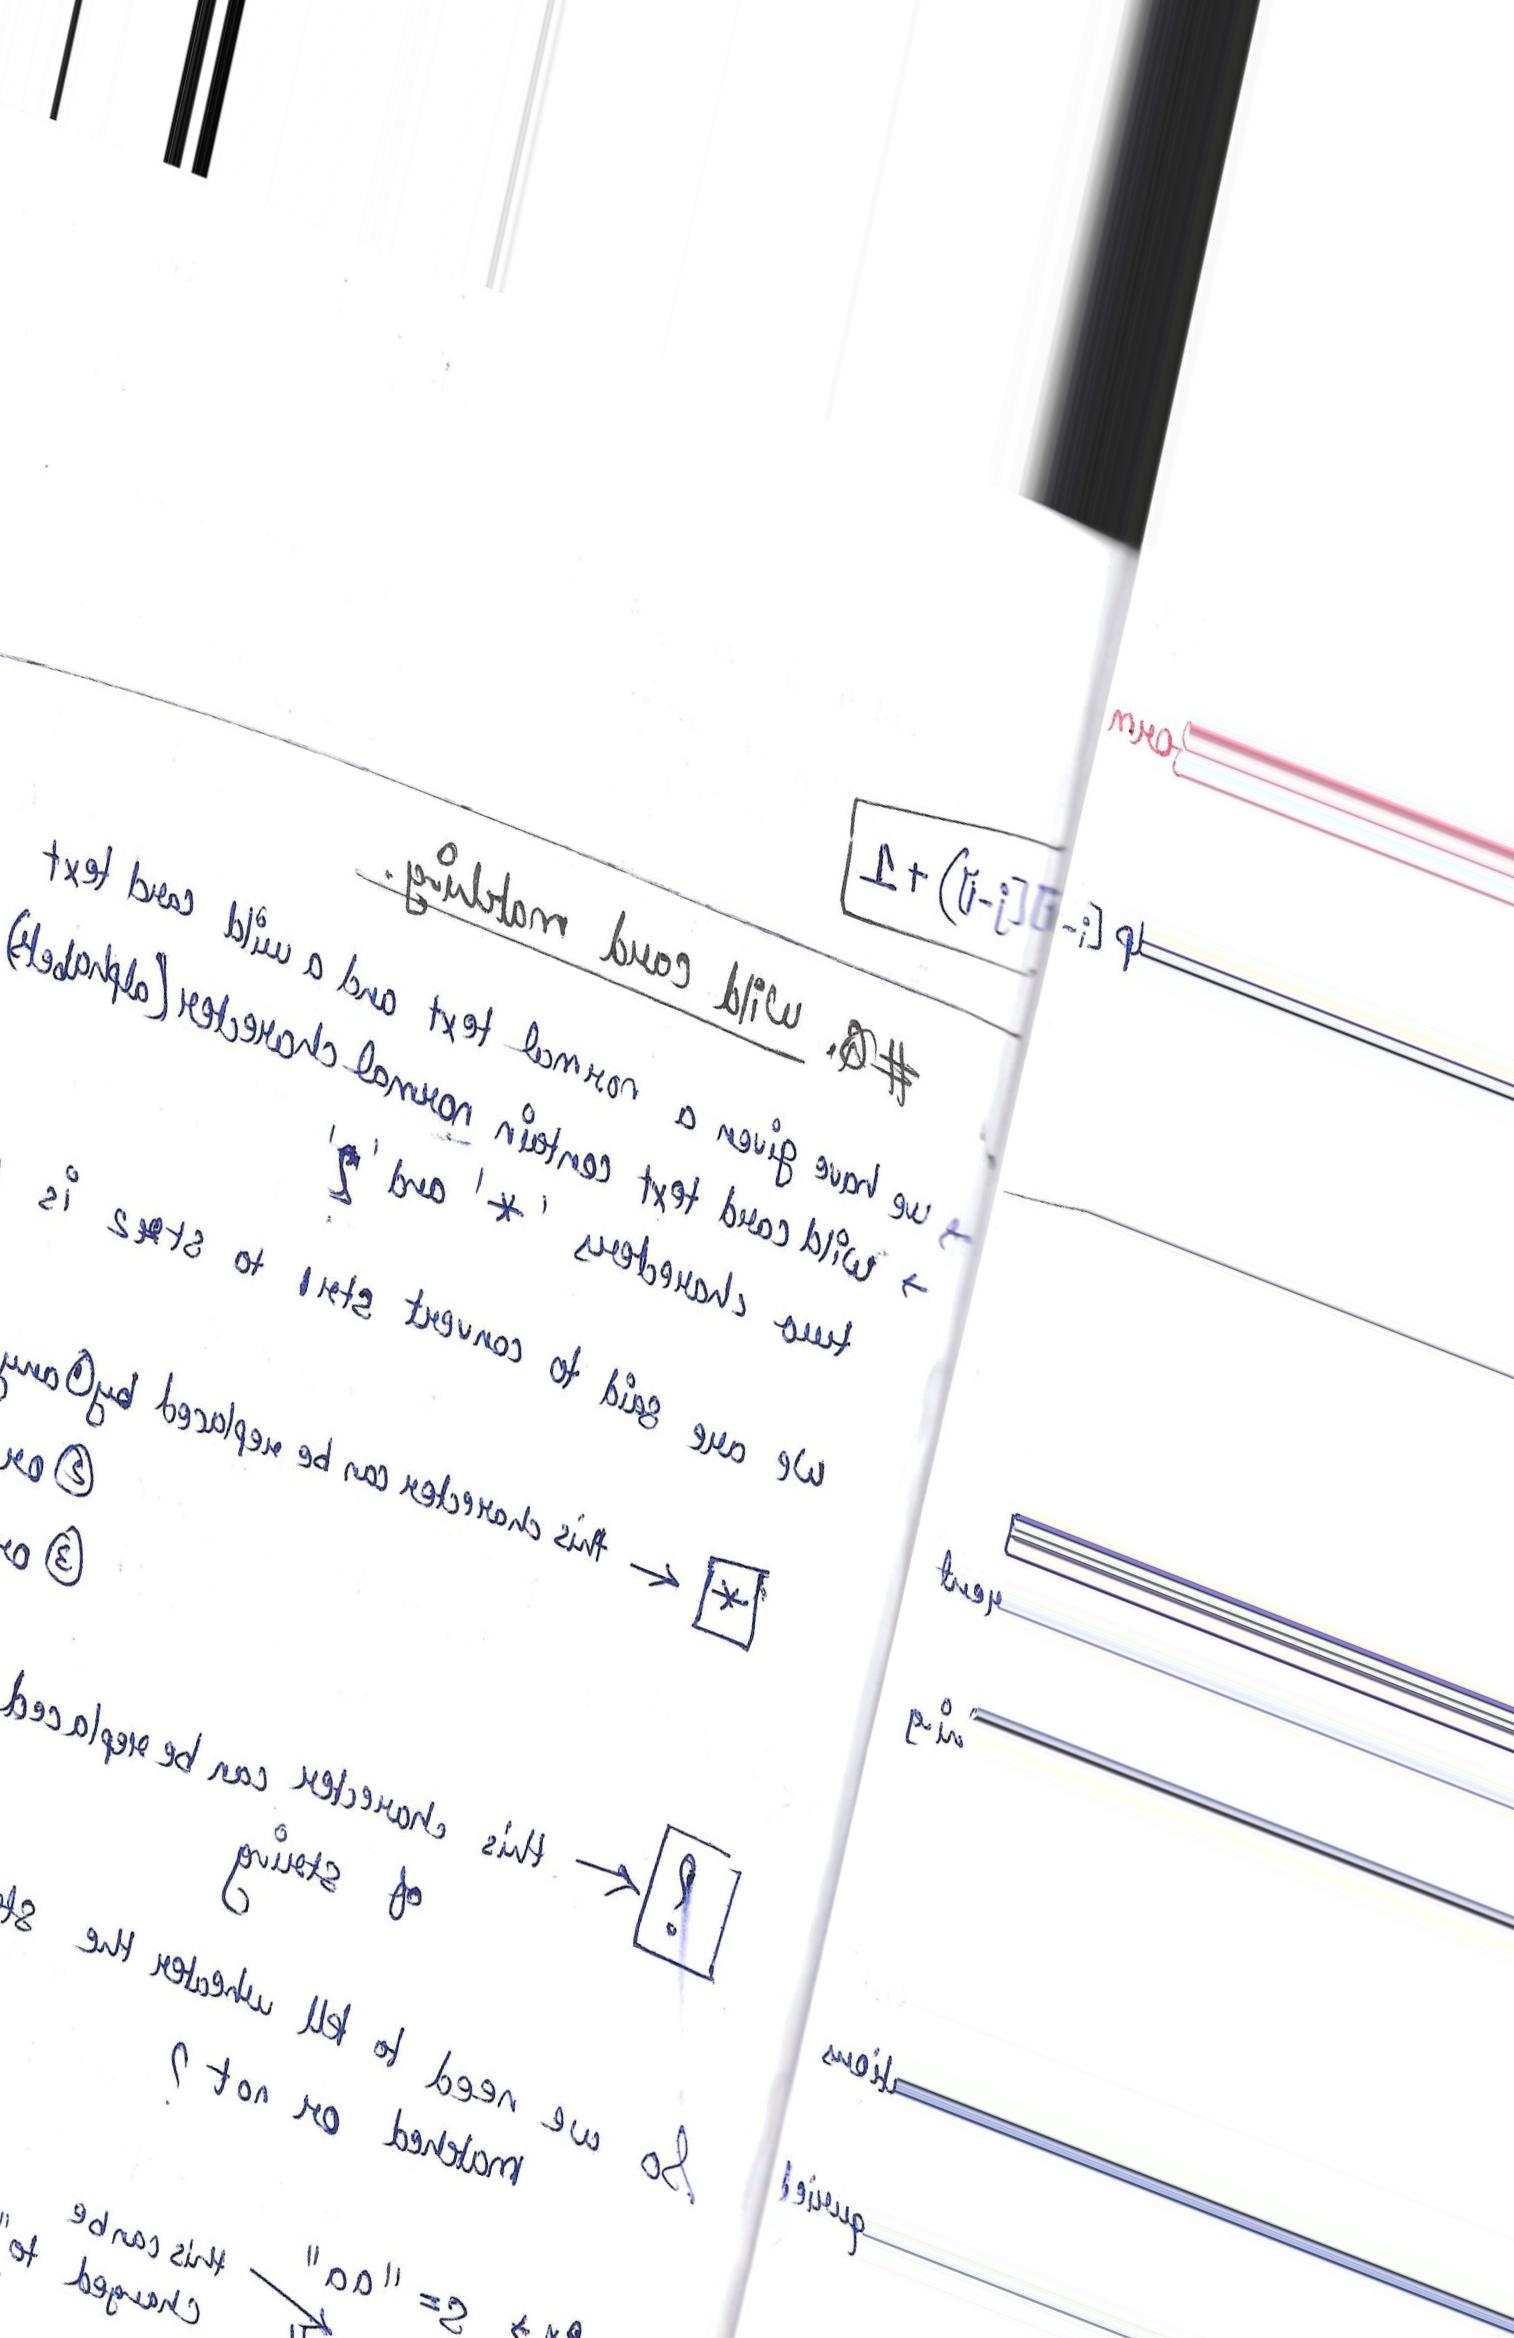 orm
dp[i-1][j-1]) + 1
#Q. wild card matching.
→ we have given a normal text and a wild card text
→ wild card text contain normal charecter (alphabets)
two charecters '*' and '?'
we are said to convert str1 to str2 is
* → this charecter can be replaced by ① any
② or
③ or
? → this charecter can be replaced
of string
So we need to tell wheater the st
matched or not?
S = "aa"
this can be
changed to "
ment
ing
utions